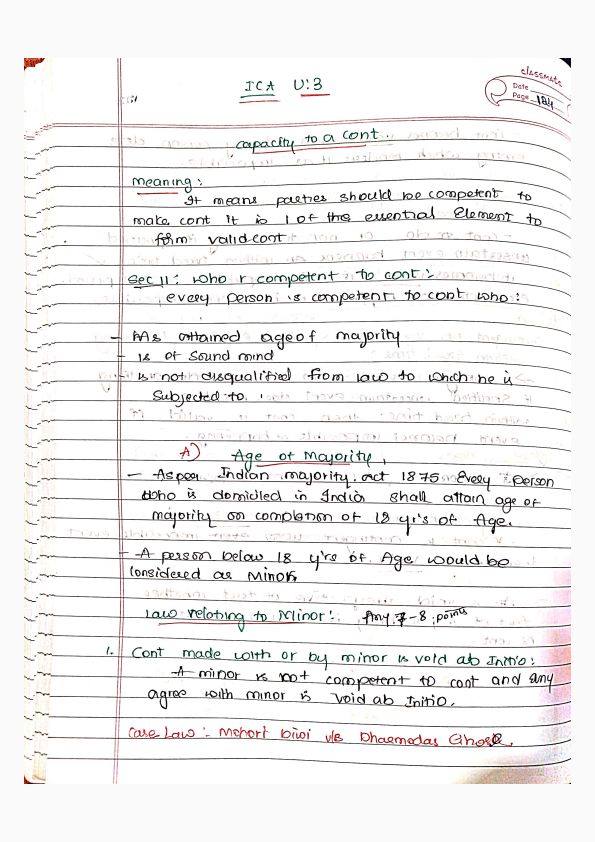 classmate
Date
Page 124
ICA U:3
capacity to a cont..
meaning:
It means parties should be competent to
make cont It is 1 of the essential Element to
form valid cont
Sec 11: who r competent to cont:.
every person is competent to cont who:
- Has attained age of majority
- is of sound mind
- is not disqualified from law to which he is
subjected to.
A) Age of Majority,
- As per Indian majority act 1875 Every person
who is domiciled in India shall attain age of
majority on completion of 18 yr's of Age.
- A person below 18 yrs of Age would be
considered as Minor.
Law relating to Minor:. Any 7-8 points
1. Cont made with or by minor is void ab Initio:
- A minor is not competent to cont and any
agree with minor is void ab Initio.
Case Law:- Mohori bivi v/s Dharmodas Ghose.